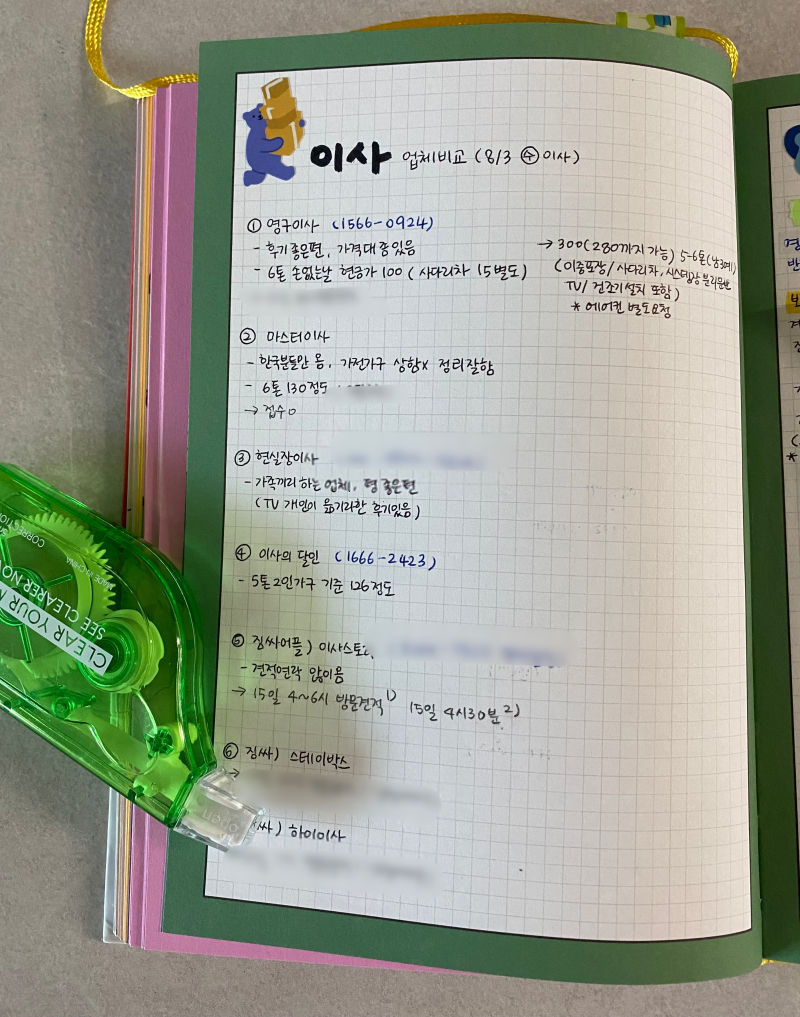 이사 업체비교 (8/3 수 이사)
① 영구이사 (1566-0924)
- 후기 좋은편, 가격대 중 있음
- 6톤 손없는날 현금가 100 (사다리차 15별도)
→ 300(280까지 가능) 5-6톤(남3여1)
(이중포장/사다리차, 시스템장 분리운반
TV/건조기설치 포함)
* 에어컨 별도요청
② 마스터이사
- 한국분들만 옴, 가전가구 상함X 정리잘함
- 6톤 130정도
→ 접수O
③ 현실장이사
- 가족끼리 하는 업체, 평 좋은편
(TV 개인이 옮기라한 후기있음)
④ 이사의 달인 (1666-2423)
- 5톤 2인가구 기준 126정도
⑤ 짐싸어플) 이사스토
- 견적연락 많이옴
→ 15일 4~6시 방문견적 1) 15일 4시30분 2)
⑥ 짐싸) 스테이박스
→
싸) 하이이사
CLEAR YOUR
SEE CLEARER NOW
CORRECTION
MADE IN CHINA
open